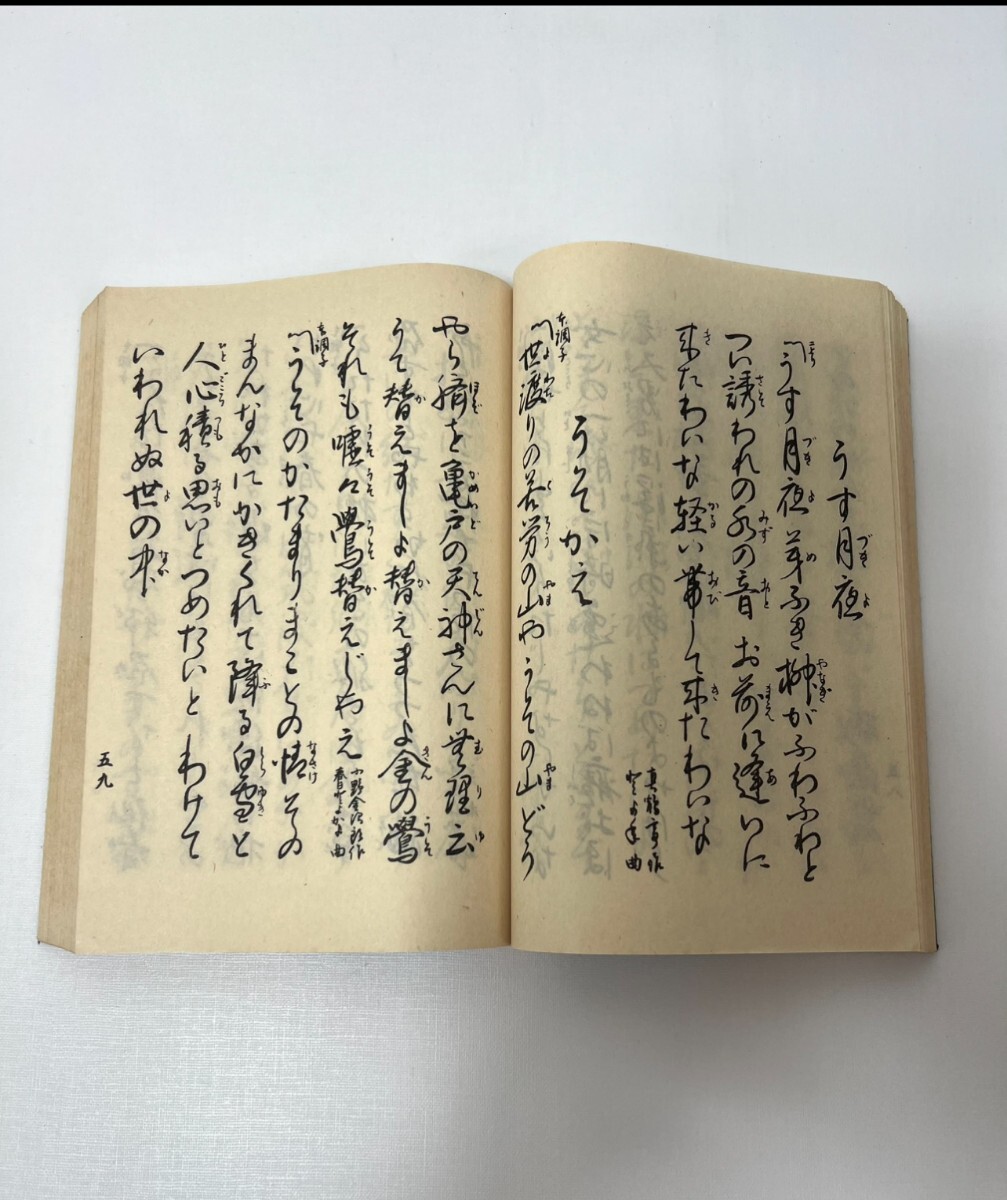 うす月夜
〽うす月夜芽ふき柳がふわふわと
つい誘われの水の音 お前に逢いに
来たわいな軽い帯して来たわいな
うそかえ
本調子
〽世渡りの苦労の山やうその山どう
やら臍を亀戸の天神さんに無理云
うて替えましよ替えましよ金の鷽
それも嘘々鷽替えじやえ
小野金次郎作
本調子
〽うそのかたまりまことの情その
まんなかにかきくれて降る白雪と
人心積る思いとつめたいと わけて
いわれぬ世の中
五九